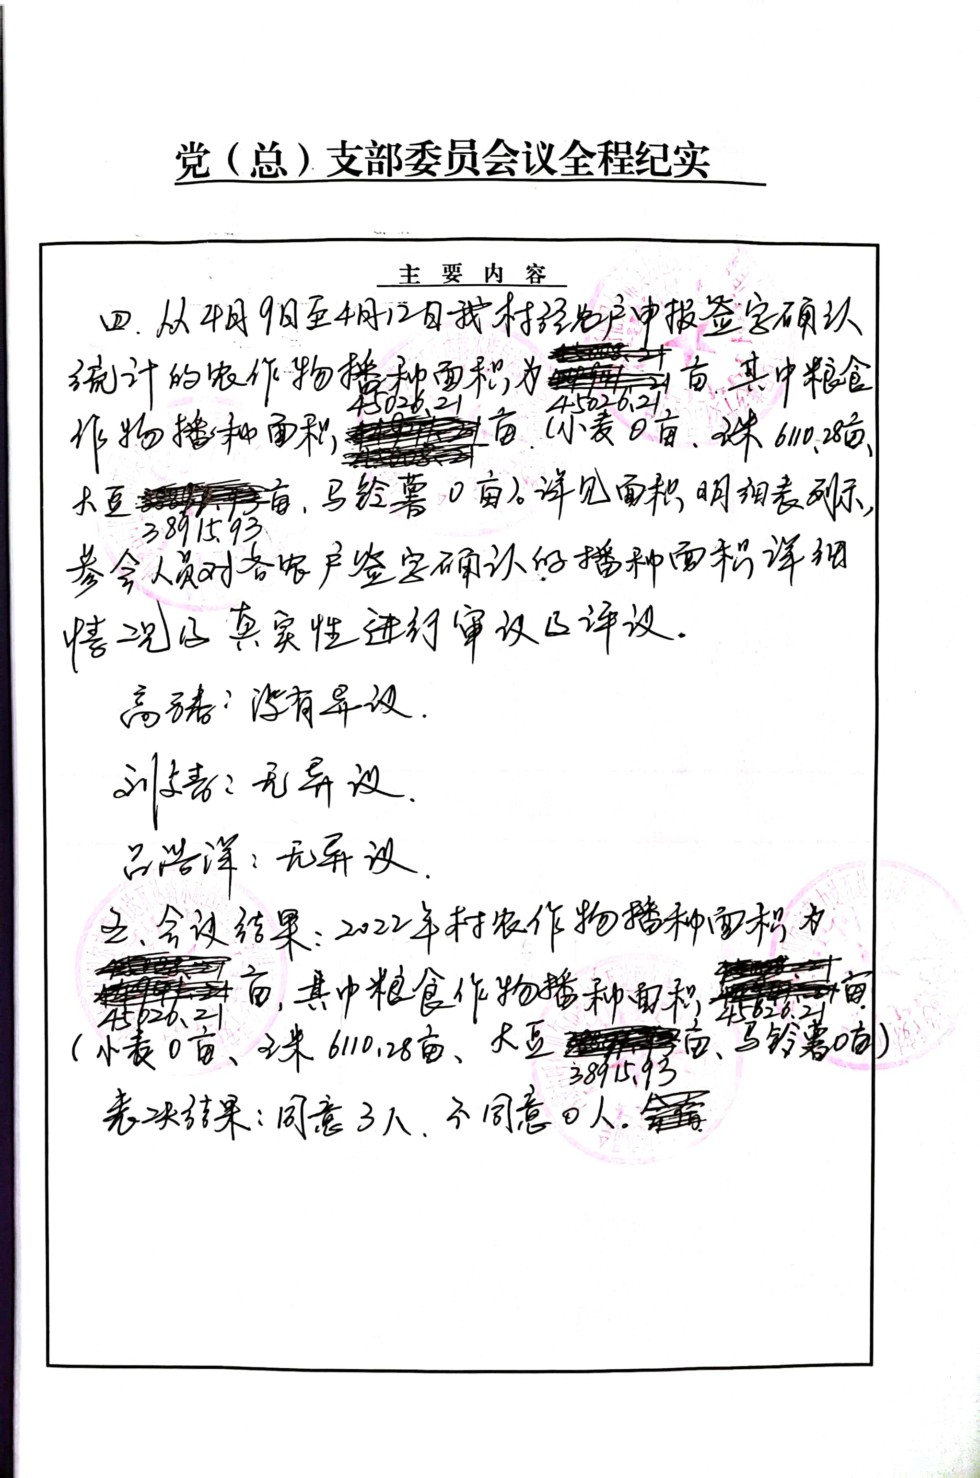 党（总）支部委员会议全程纪实
主要内容
四、从4月9日至4月12日我村经农户申报签字确认
统计的农作物播种面积为45026.21亩,其中粮食
作物播种面积45026.21亩(小麦0亩、玉米6110.28亩、
大豆38915.93亩、马铃薯0亩)。详见面积明细表列示,
参会人员对各农户签字确认的播种面积详细
情况及真实性进行审议及评议。
高 : 没有异议.
刘 : 无异议.
吕浩洋: 无异议.
五、会议结果: 2022年村农作物播种面积为
45026.21亩,其中粮食作物播种面积45026.21亩.
(小麦0亩、玉米6110.28亩、大豆38915.93亩、马铃薯0亩)
表决结果: 同意3人、不同意0人。